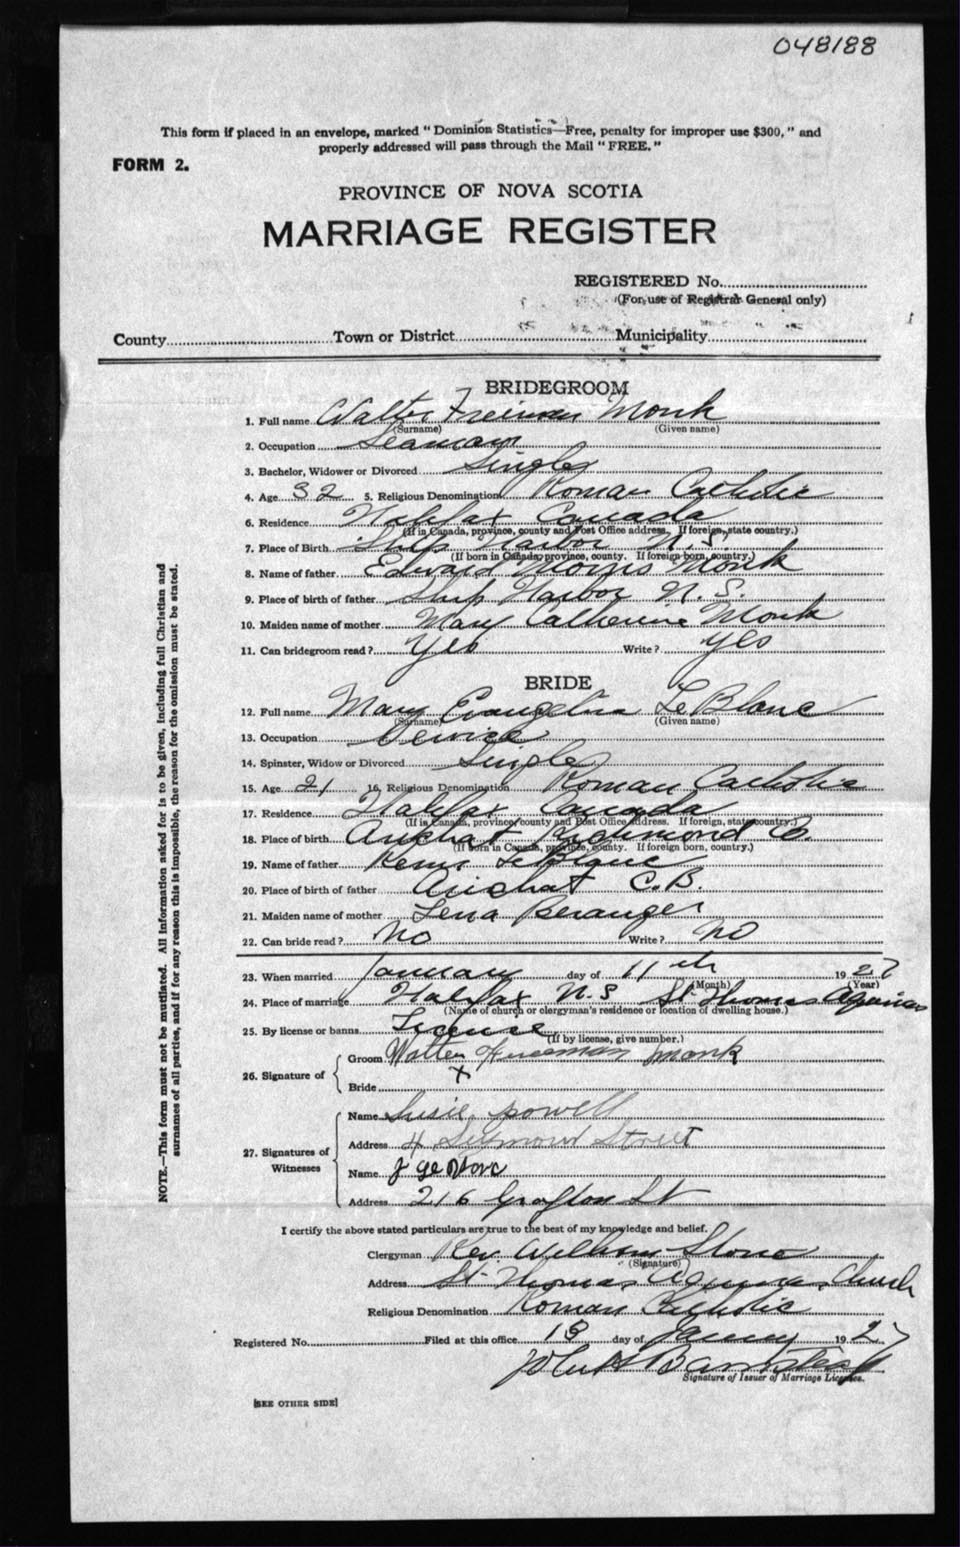 048188
This form if placed in an envelope, marked "Dominion Statistics—Free, penalty for improper use $300," and
properly addressed will pass through the Mail "FREE."
FORM 2.
PROVINCE OF NOVA SCOTIA
MARRIAGE REGISTER
REGISTERED No.
(For use of Registrar General only)
County Town or District Municipality
BRIDEGROOM
1. Full name Walter Freeman Monk
(Surname) (Given name)
2. Occupation Seaman
3. Bachelor, Widower or Divorced Single
4. Age 32 5. Religious Denomination Roman Catholic
6. Residence Halifax Canada
(If in Canada, province, county and Post Office address. If foreign, state country.)
7. Place of Birth Ship Harbor N.S.
(If born in Canada, province, county. If foreign born, country.)
8. Name of father Edward Morris Monk
9. Place of birth of father Ship Harbor N.S.
10. Maiden name of mother Mary Catherine Monk
11. Can bridegroom read? Yes Write? Yes
BRIDE
12. Full name Mary Evangeline LeBlanc
(Surname) (Given name)
13. Occupation Service
14. Spinster, Widow or Divorced Single
15. Age 21 16. Religious Denomination Roman Catholic
17. Residence Halifax Canada
(If in Canada, province, county and Post Office address. If foreign, state country.)
18. Place of birth Arichat Richmond Co.
(If born in Canada, province, county. If foreign born, country.)
19. Name of father LeBlanc
20. Place of birth of father Arichat C.B.
21. Maiden name of mother Lena Beranger
22. Can bride read? No Write? No
23. When married January day of 11th 1927
(Month) (Year)
24. Place of marriage Halifax N.S St. Thomas Aquinas
(Name of church or clergyman's residence or location of dwelling house.)
25. By license or banns License
(If by license, give number.)
26. Signature of
Groom Walter Freeman Monk
Bride X
27. Signatures of Witnesses
Name Susie Powell
Address 4 Seymour Street
Name J
Address 216 Grafton St
I certify the above stated particulars are true to the best of my knowledge and belief.
Clergyman Rev William Stone
(Signature)
Address St. Thomas Aquinas Church
Religious Denomination Roman Catholic
Registered No. Filed at this office 18 day of January 1927
Signature of Issuer of Marriage Licenses.
[SEE OTHER SIDE]
NOTE.—This form must not be mutilated. All information asked for is to be given, including full Christian and
surnames of all parties, and if for any reason this is impossible, the reason for the omission must be stated.